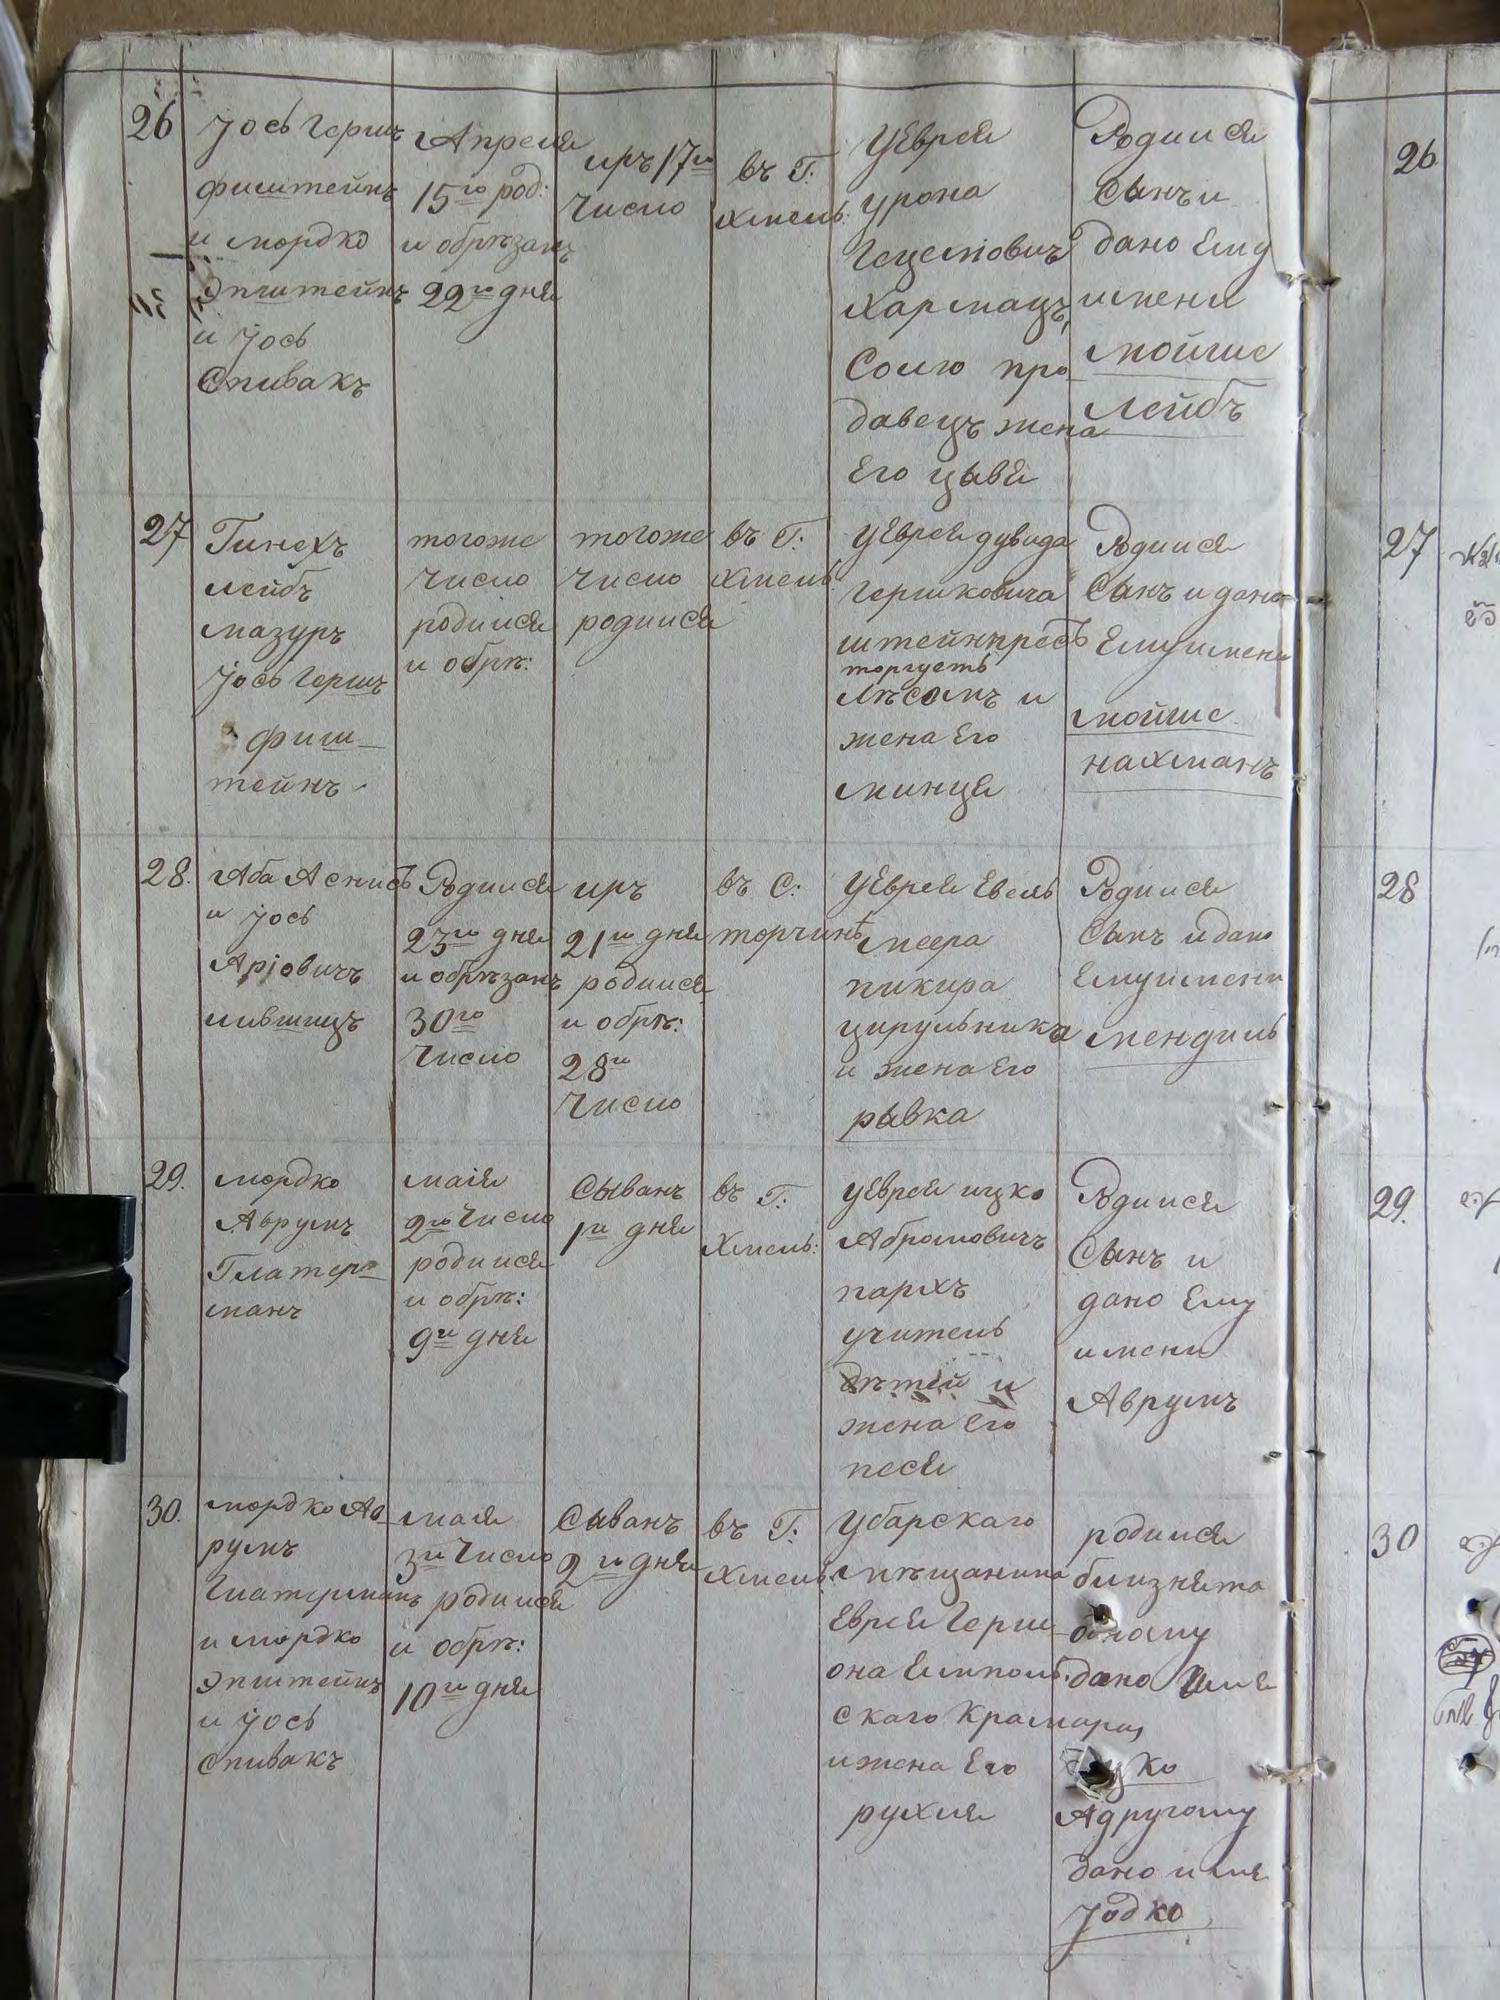 26
Іось Гершъ
фиштейнъ
и мордко
Эпштейнъ
и Іось
Спивакъ
Апреля
15го род:
и обрѣзанъ
22го дня
иръ 17го
Число
въ Г:
Хмель:
У Еврея
урона
Гецелювичъ
Хармацъ,
Солю про
давецъ жена
Его цывя
Родился
Сынъ и
дано Ему
имени
мойше
Лейбъ
26
27
Гинехъ
лейбъ
мазуръ
Іось Гершъ
фиш-
тейнъ
тогоже
Число
родился
и обрѣ:
тогоже
Число
родился
въ Г:
Хмель
У Еврея дувида
Гершковича
штейнпресъ
торгуетъ
Лѣсомъ и
жена Его
минця
Родился
Сынъ и дано
Ему имени
мойше
нахманъ
27
28.
Аба Аснисъ
и Іось
Аріовичъ
лившицъ
Родился
23го дня
и обрѣзанъ
30го
Число
иръ
21го дня
родился
и обрѣ:
28го
Число
въ С:
торчинъ
У Еврея Евель
меера
пикира
цирульника
и жена Его
рывка
Родился
Сынъ и дано
Ему имени
мендиль
28
29.
мордко
Аврумъ
Глатер-
манъ
маія
2го Число
родился
и обрѣ:
9го дня
Сыванъ
1го дня
въ Г:
Хмель:
У Еврея ицко
Абрамовичъ
пархъ
учитель
дѣтей и
жена Его
песя
Родился
Сынъ и
дано Ему
имени
Аврумъ
29.
30.
мордко Ав
румъ
Глатерманъ
и мордко
Эпштейнъ
и Іось
спивакъ
мая
3го Число
родился
и обрѣ:
10го дня
Сыванъ
2го дня
въ Г:
Хмель:
У барскаго
мѣщанина
Еврея Герш
она Ямполь.
скаго Крамара,
и жена Его
рухля
родился
близнята
одному
дано имя
Ицко
А другому
дано имя
Іодко
30